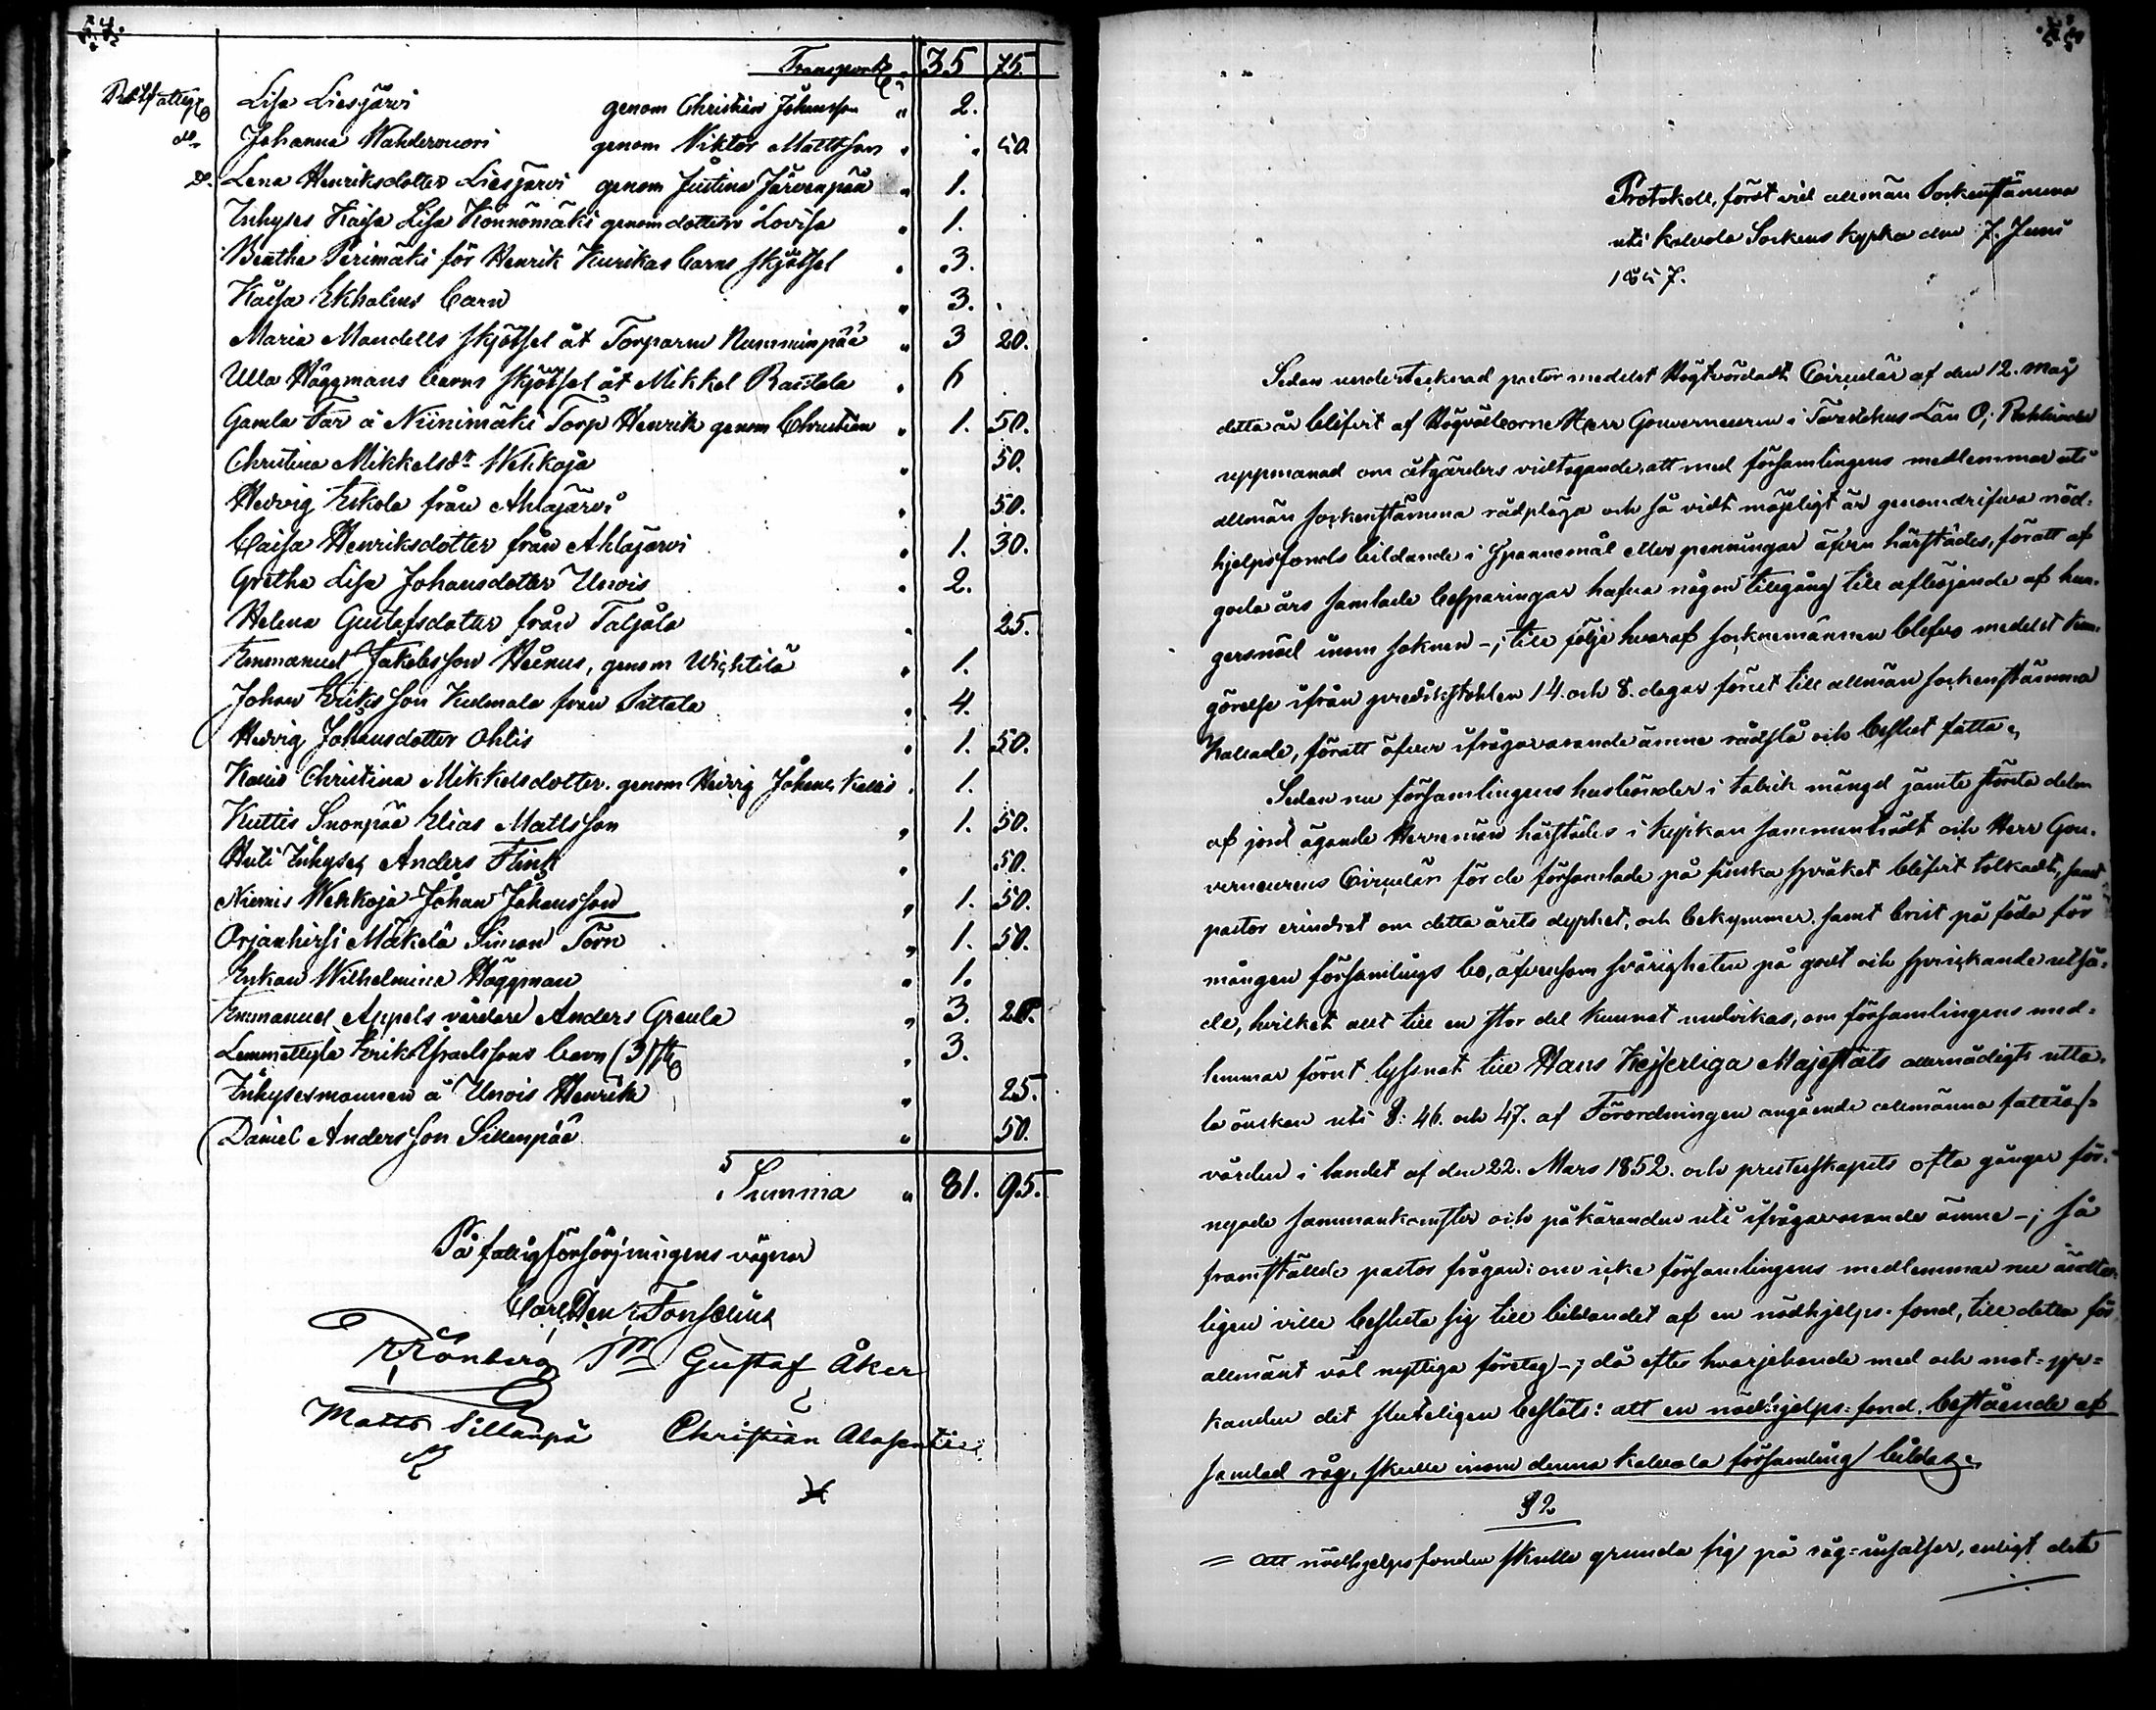 Transport 35 75.
Lisa Liesjärvi genom Christian Johansson " 2.
do Johanna Wahderwuori genom Viktor Mattsson " " 50.
Do. Lena Henriksdotter Liesjärvi genom Justina Järvenpää " 1.
Inhyses Kaisa Lisa Könnömäki genom dottern Lovisa " 1.
Beatha Perimäki för Henrik Kurikas barns skjötsel " 3.
Kaisa Ekholms barn " 3.
Maria Mandells skjötsel åt Torparen Numminpää " 3 20.
Ulla Häggmans barns skjötsel åt Mikkel Rastola " 6
Gamla Far å Niinimäki Torp Henrik genom Christian " 1. 50.
Christina Mikkelsdr Wehkoja " 50.
Hedvig Eskola från Ahlajärvi " 50.
Caisa Henriksdotter från Ahlajärvi " 1. 30.
Gretha Lisa Johansdotter Unois " 2.
Helena Gustafsdotter från Taljala " 25.
Emmanuel Jakobsson Heinus, genom Wichtilä " 1.
Johan Eriksson Kudmala från Sittala " 4.
Hedvig Johansdotter Ohlis " 1. 50.
Christina Mikkelsdotter genom Hedvig Johans " 1.
Kuttis Suonpää Elias Mattsson " 1. 50.
Huti Inhyses Anders Flink " 50.
Niemis Wehkoja Johan Johansson " 1. 50.
Orjanhirsi Mäkelä Simon Törn " 1. 50.
Enkan Wilhelmina Häggman " 1.
Emmanuel Appels vårdare Anders Greula " 3. 20.
Erik Israelssons barn (3) " 3.
Inhysesmannen å Unois Henrik " 25.
Daniel Andersson Sillenpää " 50.
Summa " 81. 95.
På fattigförsörjningens vägnar
Carl Hen: Fonselius
Grönberg Gustaf Åker
Matts Sillanpä Christian Alasentie
Protokoll, fördt vid allmän Sockenstämma
uti Kalvola Sockens kyrka den 7. Juni
1857.
Sedan undertecknad pastor medelst Högtvördadt Circulär af den 12. Maj
detta år blifvit af Högvälborne Herr Gouverneuren i Tavastehus Län O: Rehbinder
uppmanad om åtgärders vidtagande, att med församlingens medlemmar uti
allmän sockenstämma rådpläga och så vidt möjeligt är genomdrifva nöd-
hjelpsfonds bildande i Spannemål eller penningar äfven härstädes, för att af
goda års samlade besparingar hafva någon tillgång till afböjande af hun-
gersnöd inom soknen –; till följe hvaraf socknemännen blefvo medelst kun-
görelse ifrån predikstohlen 14. och 8. dagar förut till allmän sockenstämma
kallade, för att öfver ifrågavarande ämne rådslå och beslut fatta.
Sedan nu församlingens husbönder i talrik mängd jämte största delen
af jord ägande Herremän härstädes i kyrkan sammanträdt och Herr Gou-
verneurens Circulär för de församlade på finska språket blifvit tolkadt, samt
pastor erindrat om detta årets dyrhet, och bekymmer samt brist på föda för
mången församlings bo, äfvensom svårigheten på godt och spirande utsä-
de, hvilket allt till en stor del kunnat undvikas, om församlingens med-
lemmar förut lyssnat till Hans Kejserliga Majestäts allernådigts utta-
la önskan uti §: 46. och 47. af Förordningen angående allmänna fattig-
vården i landet af den 22. Mars 1852. och presterskapets ofta gånger för-
nyade sammankomster och påkäranden uti ifrågavarande ämne –; så
framställde pastor frågan: om icke församlingens medlemmar nu ändte-
ligen ville besluta sig till bildandet af en nödhjelps-fond, till detta för
allmänt väl nyttiga företag –; då efter hvarjehanda med och mot-yr-
kanden det sluteligen beslöts: att en nödhjelps-fond, bestående af
samlad råg, skulle inom denna Kalvola församling bildas.
§ 2
= att nödhjelpsfonden skulle grunda sig på råg-insatser, enligt deta